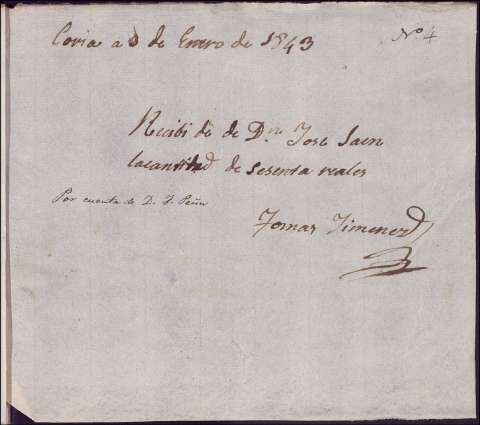 Coria a 8 de Enero de 1843
Nº 4
Recibi de de Dn Jose Saen
la cantidad de sesenta reales
Por cuenta de D. J. Peña
Tomas Jimenez